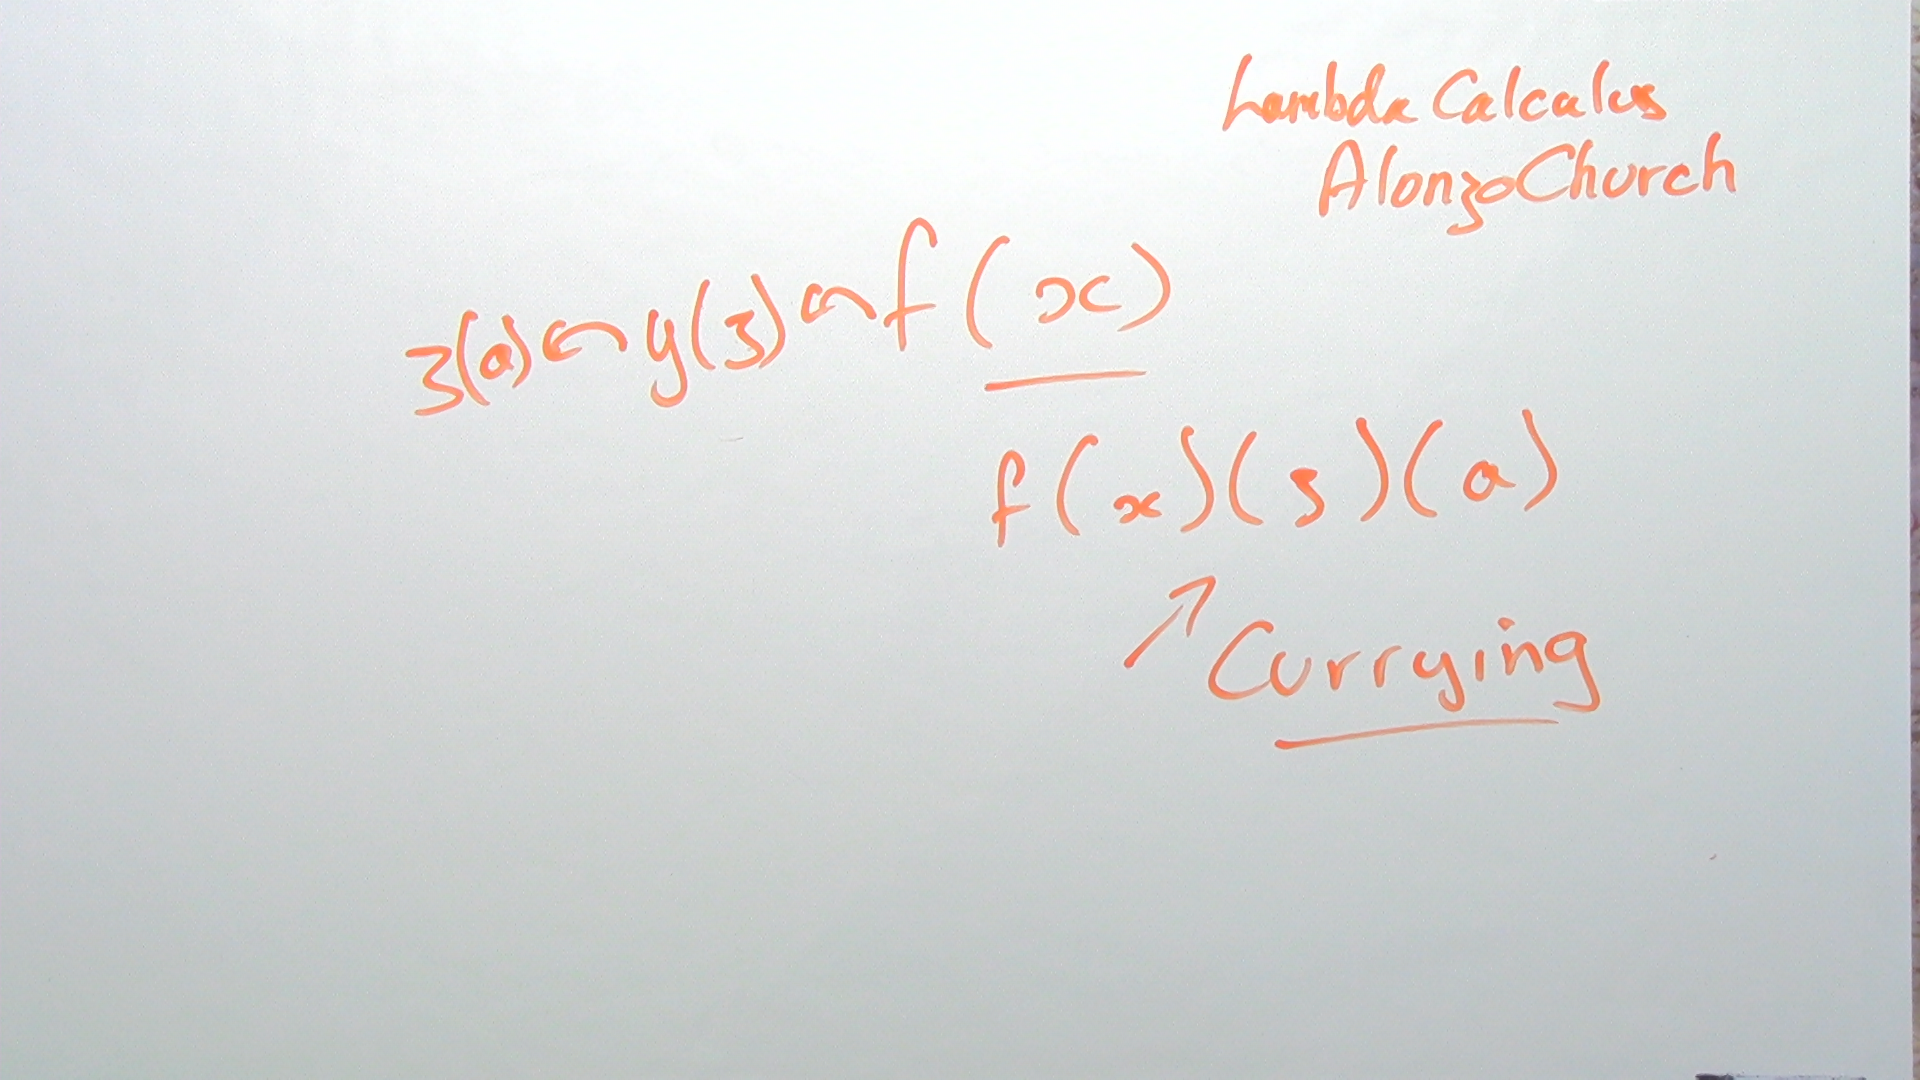 Lambda Calculus
Alonzo Church
z(a) ← y(z) ← f(x)
f(x)(z)(a)
Currying